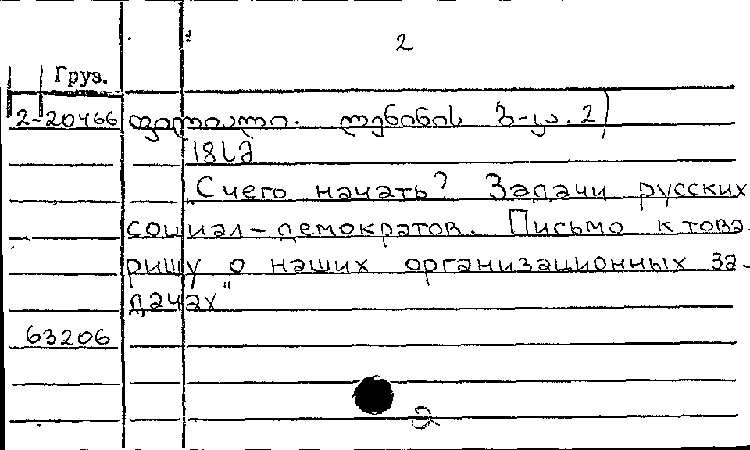 2
Груз.
2-20466 ლენინის ბ-კა. 2)
18 სმ
С чего начать? Задачи русских
социал-демократов. Письмо к това-
рищу о наших организационных за-
дачах"
63206